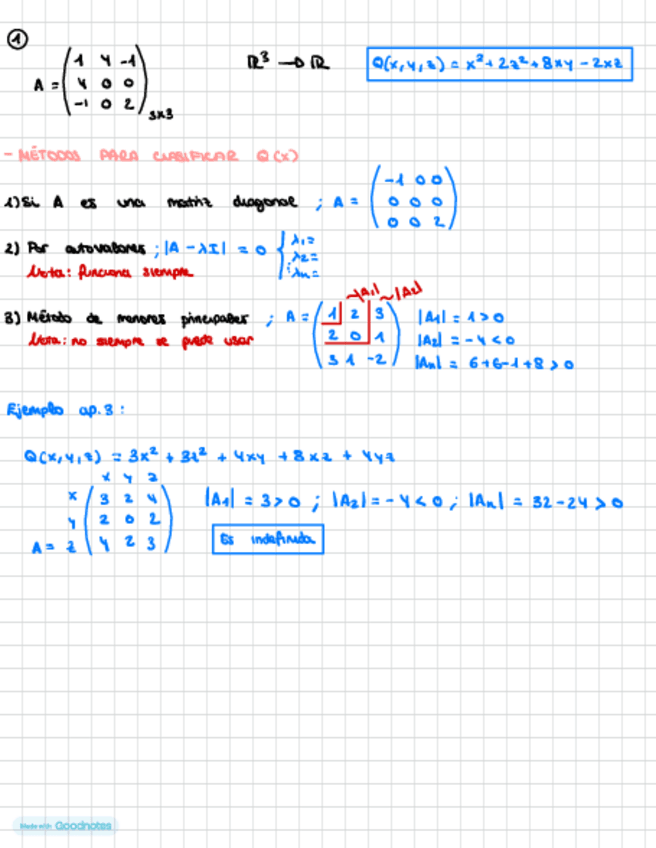 ①
A = ( 1 4 -1
4 0 0
-1 0 2 ) 3x3
ℝ³ → ℝ
Q(x,y,z) = x² + 2z² + 8xy - 2xz
- MÉTODOS PARA CLASIFICAR Q(x)
1) Si A es una matriz diagonal ; A = ( -1 0 0
0 0 0
0 0 2 )
2) Por autovalores ; |A - λI| = 0 { λ1=
λ2=
⋮ λn=
Nota: funciona siempre
3) Método de menores principales ; A = ( 1 2 3
2 0 1
3 1 -2 )
→|A1| →|A2|
Nota: no siempre se puede usar
|A1| = 1 > 0
|A2| = -4 < 0
|An| = 6+6-1+8 > 0
Ejemplo ap. 3 :
Q(x,y,z) = 3x² + 3z² + 4xy + 8xz + 4yz
x y z
x ( 3 2 4
y 2 0 2
A = z 4 2 3 )
|A1| = 3 > 0 ; |A2| = -4 < 0 ; |An| = 32 - 24 > 0
Es indefinida
Made with Goodnotes